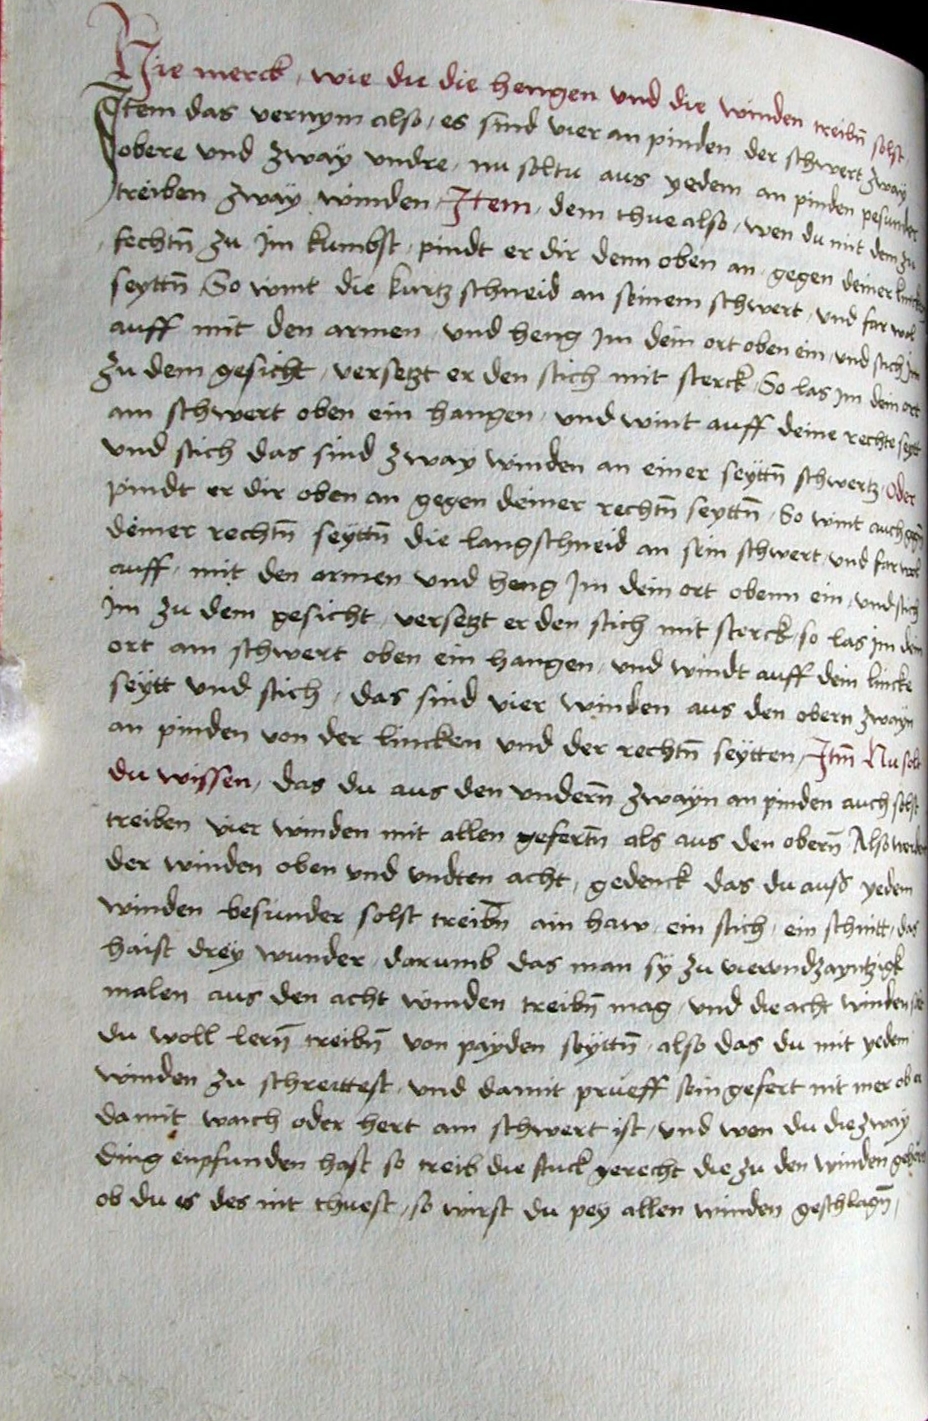 Hie merck, wie du die hengen und die winden treibñ solst,
Item das vernym also, es sind vier an pinden der schwert zway
obere und zwaÿ undre, nu soltu aus yedem an pinden pesunder
treiben zwaÿ winden, Item, dem thue also, wen du mit dem zu
fechtñ zu Im kumbst, pindt er dir denn oben an gegen deiner lincken
seyttñ So wint die kurtz schneid an seinem schwert, und far wol
auff mit den armen, und heng Im dein ort oben ein, und stich Im
zu dem gesicht, versetzt er den stich mit sterck, So las Im dein ort
am schwert oben ein hangen, und wint auff deine rechte seytt
und stich das sind zway winden an einer seÿttñ schwertz, Oder
pindt er dir oben an gegen deiner rechtñ seyttñ, So wint auch gegñ
deiner rechtñ seÿttñ die lang schneid an sein schwert, und far wol
auff, mit den armen und heng Im dein ort obenn ein, und stich
Im zu dem gesicht, versetzt er den stich mit sterck, so las Im dein
ort am schwert oben ein hangen, und windt auff dein lincke
seÿtt und stich, das sind vier winden aus den obern zwayn
an pinden von der lincken und der rechtñ seÿtten, Itm̃ Nu solt
du wissen, das du aus den underñ zwaÿn an pinden auch solst
treiben vier winden mit allen gefertñ als aus den oberñ Also werden
der winden oben und undten acht, gedenck das du auß yedem
winden besunder solst treibñ ain haw, ein stich, ein schnitt, das
haist dreÿ wunder, darumb das man sÿ zu vierundzayntzigk
malen aus den acht winden treibñ mag, und die acht winden,
du woll lerñ treibñ von payden seÿttñ, also das du mit yedem
winden zu schreittest, und damit prueff sein gefert nit mer ob er
damit waich oder hert am schwert ist, und wen du die zwaÿ
ding enpfunden hast so treib die stuck gerecht die zu den winden gehörñ
ob du es des nit thuest, so wirst du pey allen winden geschlagñ,